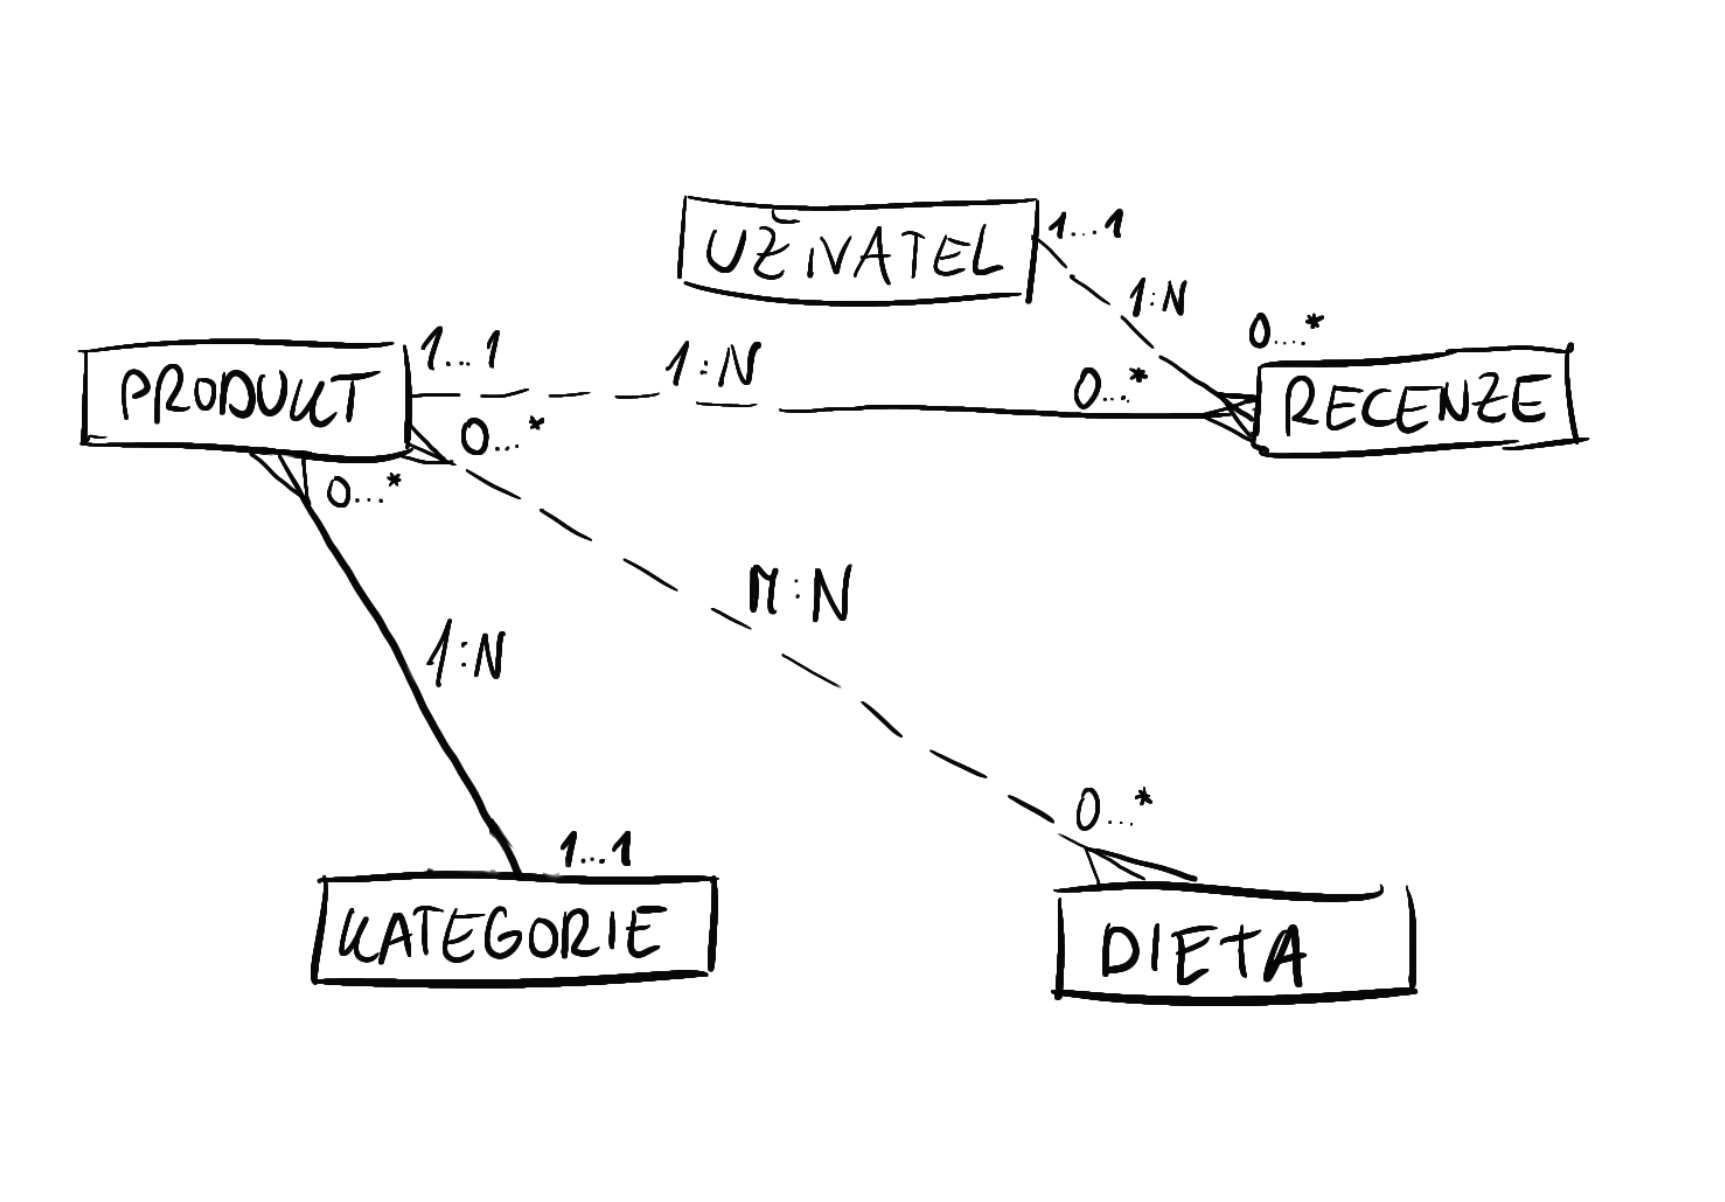 UŽIVATEL
1...1
1:N
0....*
PRODUKT
1...1
1:N
0...*
RECENZE
0...*
0...*
M:N
1:N
0...*
1...1
KATEGORIE
DIETA